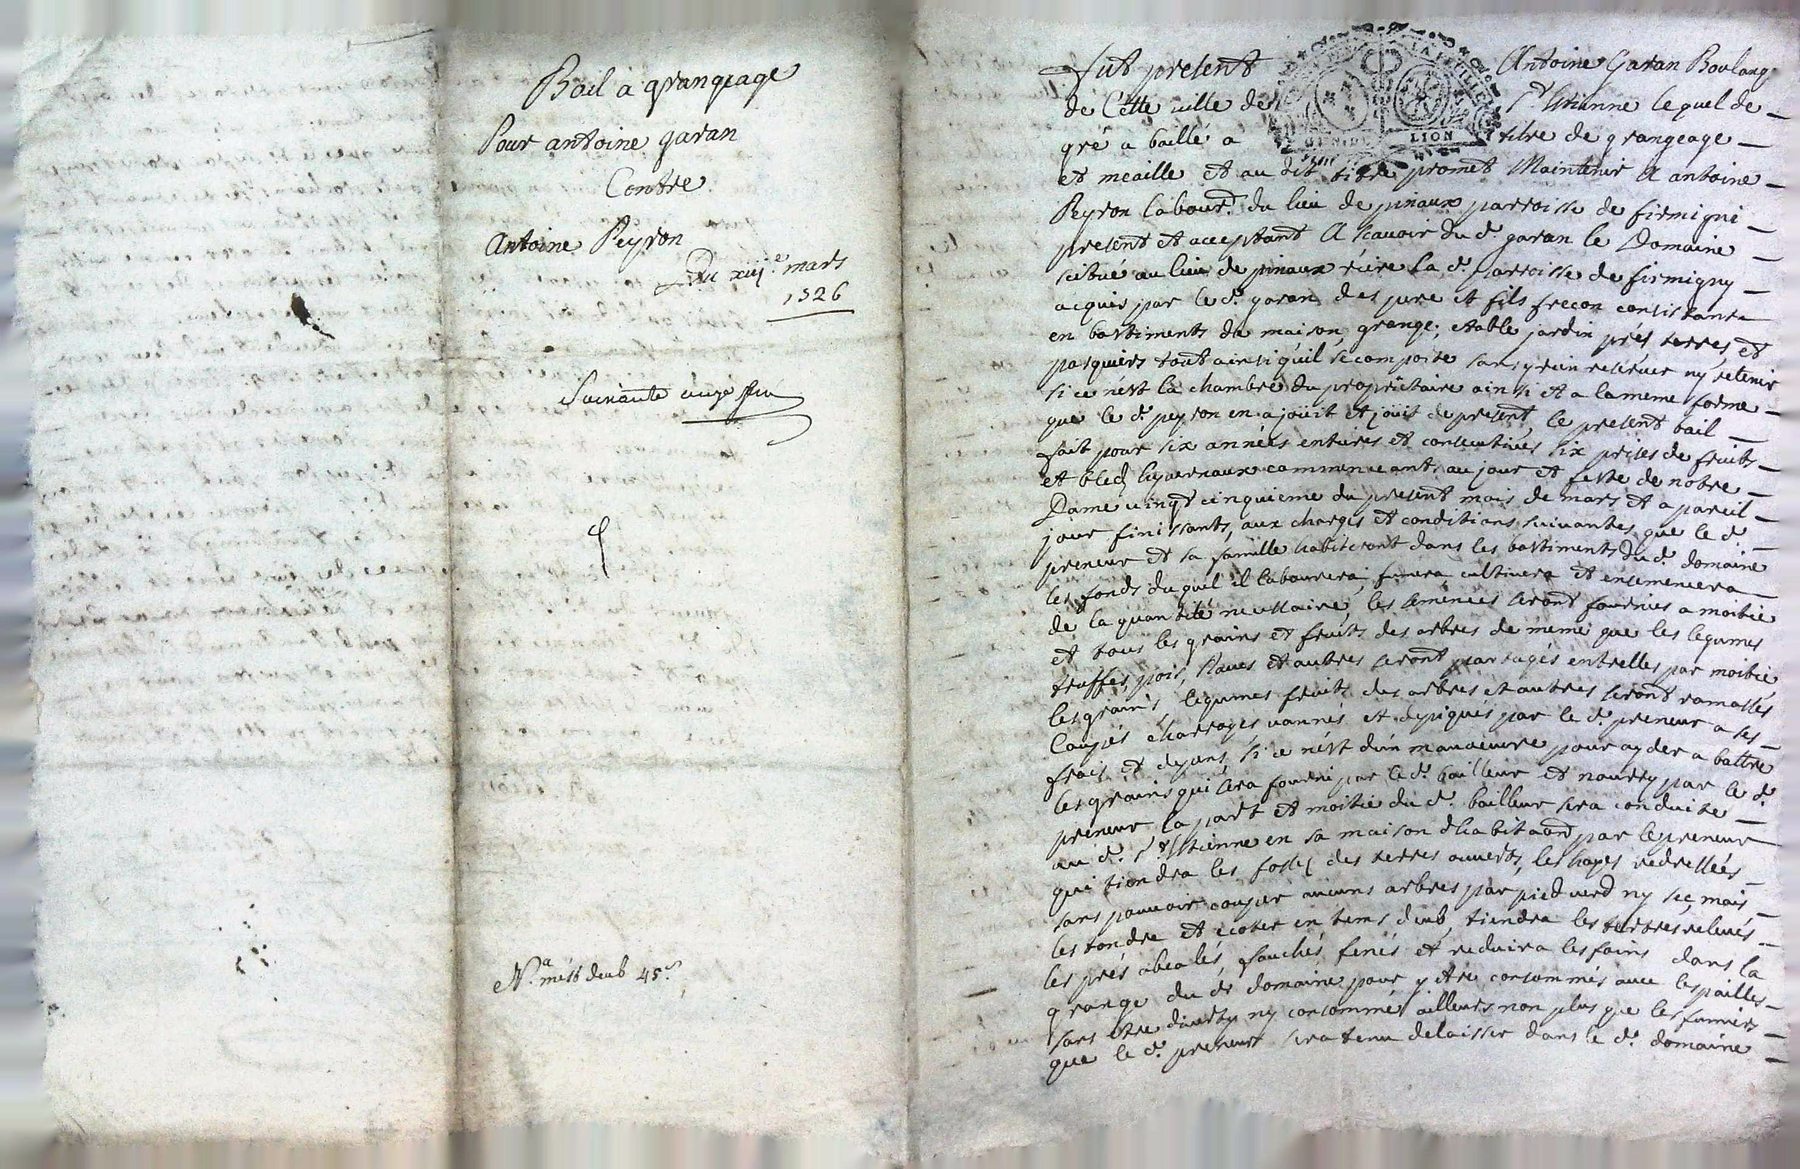 Bail a grangeage
Pour antoine garan
Contre
Antoine Peyron
Du xiij.e mars
1726
Soixante
N.a
45.s
LION
Fut present Antoine Garan Boulang
de Cette ville de S.t Etienne lequel de
gré a baillé a titre de grangeage
et méaille et au dit titre promet Maintenir A antoine
Peyron labour.r du lieu de pinaux parroisse de firmigni
present et acceptant A scavoir du d. garan le Domaine
scitué au lieu de pinaux rière la d. parroisse de firmigny
acquis par le d. garan des pere et fils frecon consistant
en bastiments de maison, grange, etable jardin prés terres, et
pasquiers tout ainsi qu'il se comporte sans y rien reserver ny retenir
si ce n'est la chambre du propriétaire ainsi et a la meme forme
que le d. peyron en a joüit et joüit de present, le present bail
fait pour six années entieres et consecutives six prises de fruits
et bled hyvernaux commenceants au jour et feste de notre
Dame vingt cinquieme du present mois de mars et a pareil
jour finissants, aux charges et conditions suivantes, que le d.
preneur et sa famille habiteront dans les bastiments du d. domaine
les fonds duquel il labourera, fumera cultivera et ensemencera
de la quantité necessaire, les semences seront fournies a moitié
et tous les grains et fruits des arbres de meme que les legumes
truffes, pois, raves et autres seront partagés entrelles par moitié
les grains, legumes fruits des arbres et autres seront ramassés
Coupés charroyés vannés et depiqués par le d. preneur a ses
frais et depans, si ce n'est d'un manoeuvre pour ayder a battre
les grains qui sera fourni par le d. bailleur et nourry par le d.
preneur, la part et moitié du d. bailleur sera conduite
au d. S.t Etienne en sa maison d'habitaon par le preneur
qui tiendra les fossez des terres ouverts, les hayes redressées
sans pouvoir couper aucuns arbres par pied verd ny sec, mais
les tondre et ecoter en tems deub, tiendra les tertres relevés
les prés abealés, fauchés, fenés et reduira les foins dans la
grange du d. domaine pour y etre consommés avec les pailles
sans etre diverty ny consommé ailleurs non plus que les fumiers
que le d. preneur sera tenu de laisser dans le d. domaine